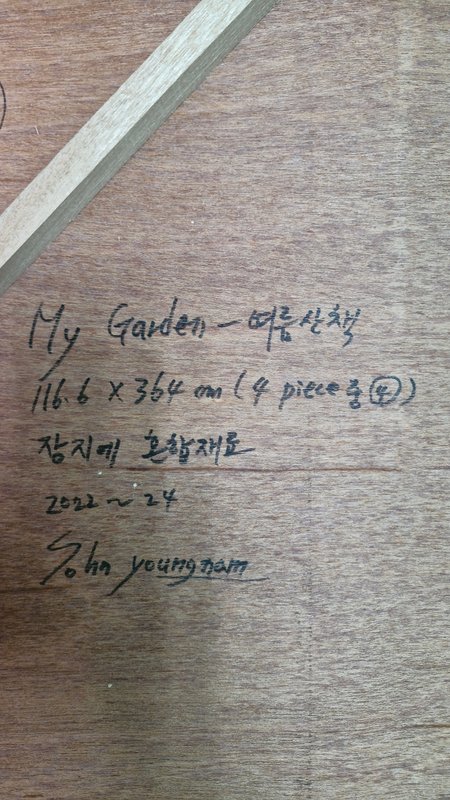 My Garden - 여름산책
116.6 x 364 cm (4 piece 중 ④)
장지에 혼합재료
2022 ~ 24
Sohn youngnam